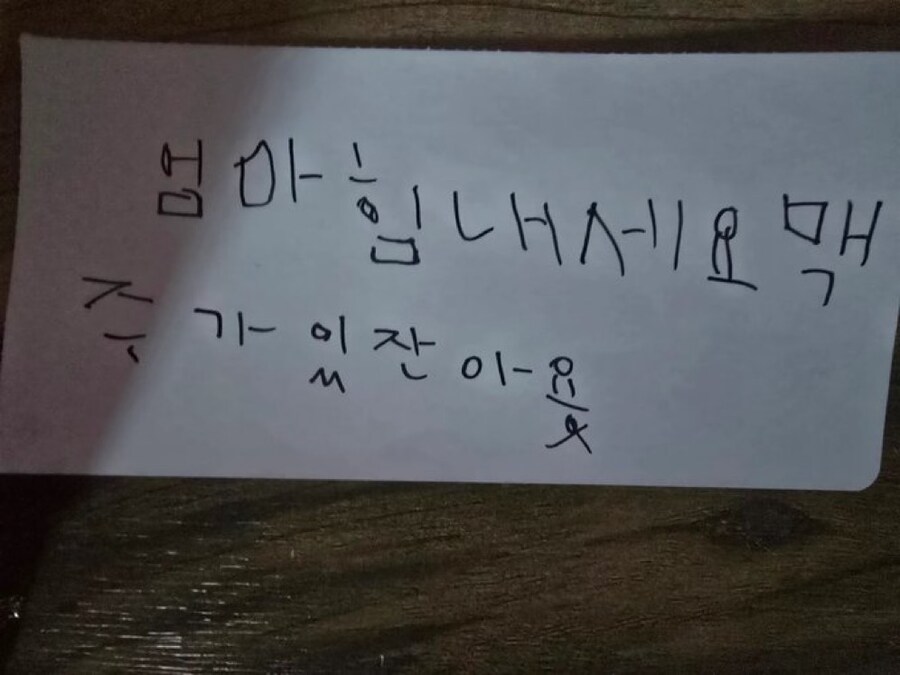 엄마 힘내세요 맥
주가 있잔아욧